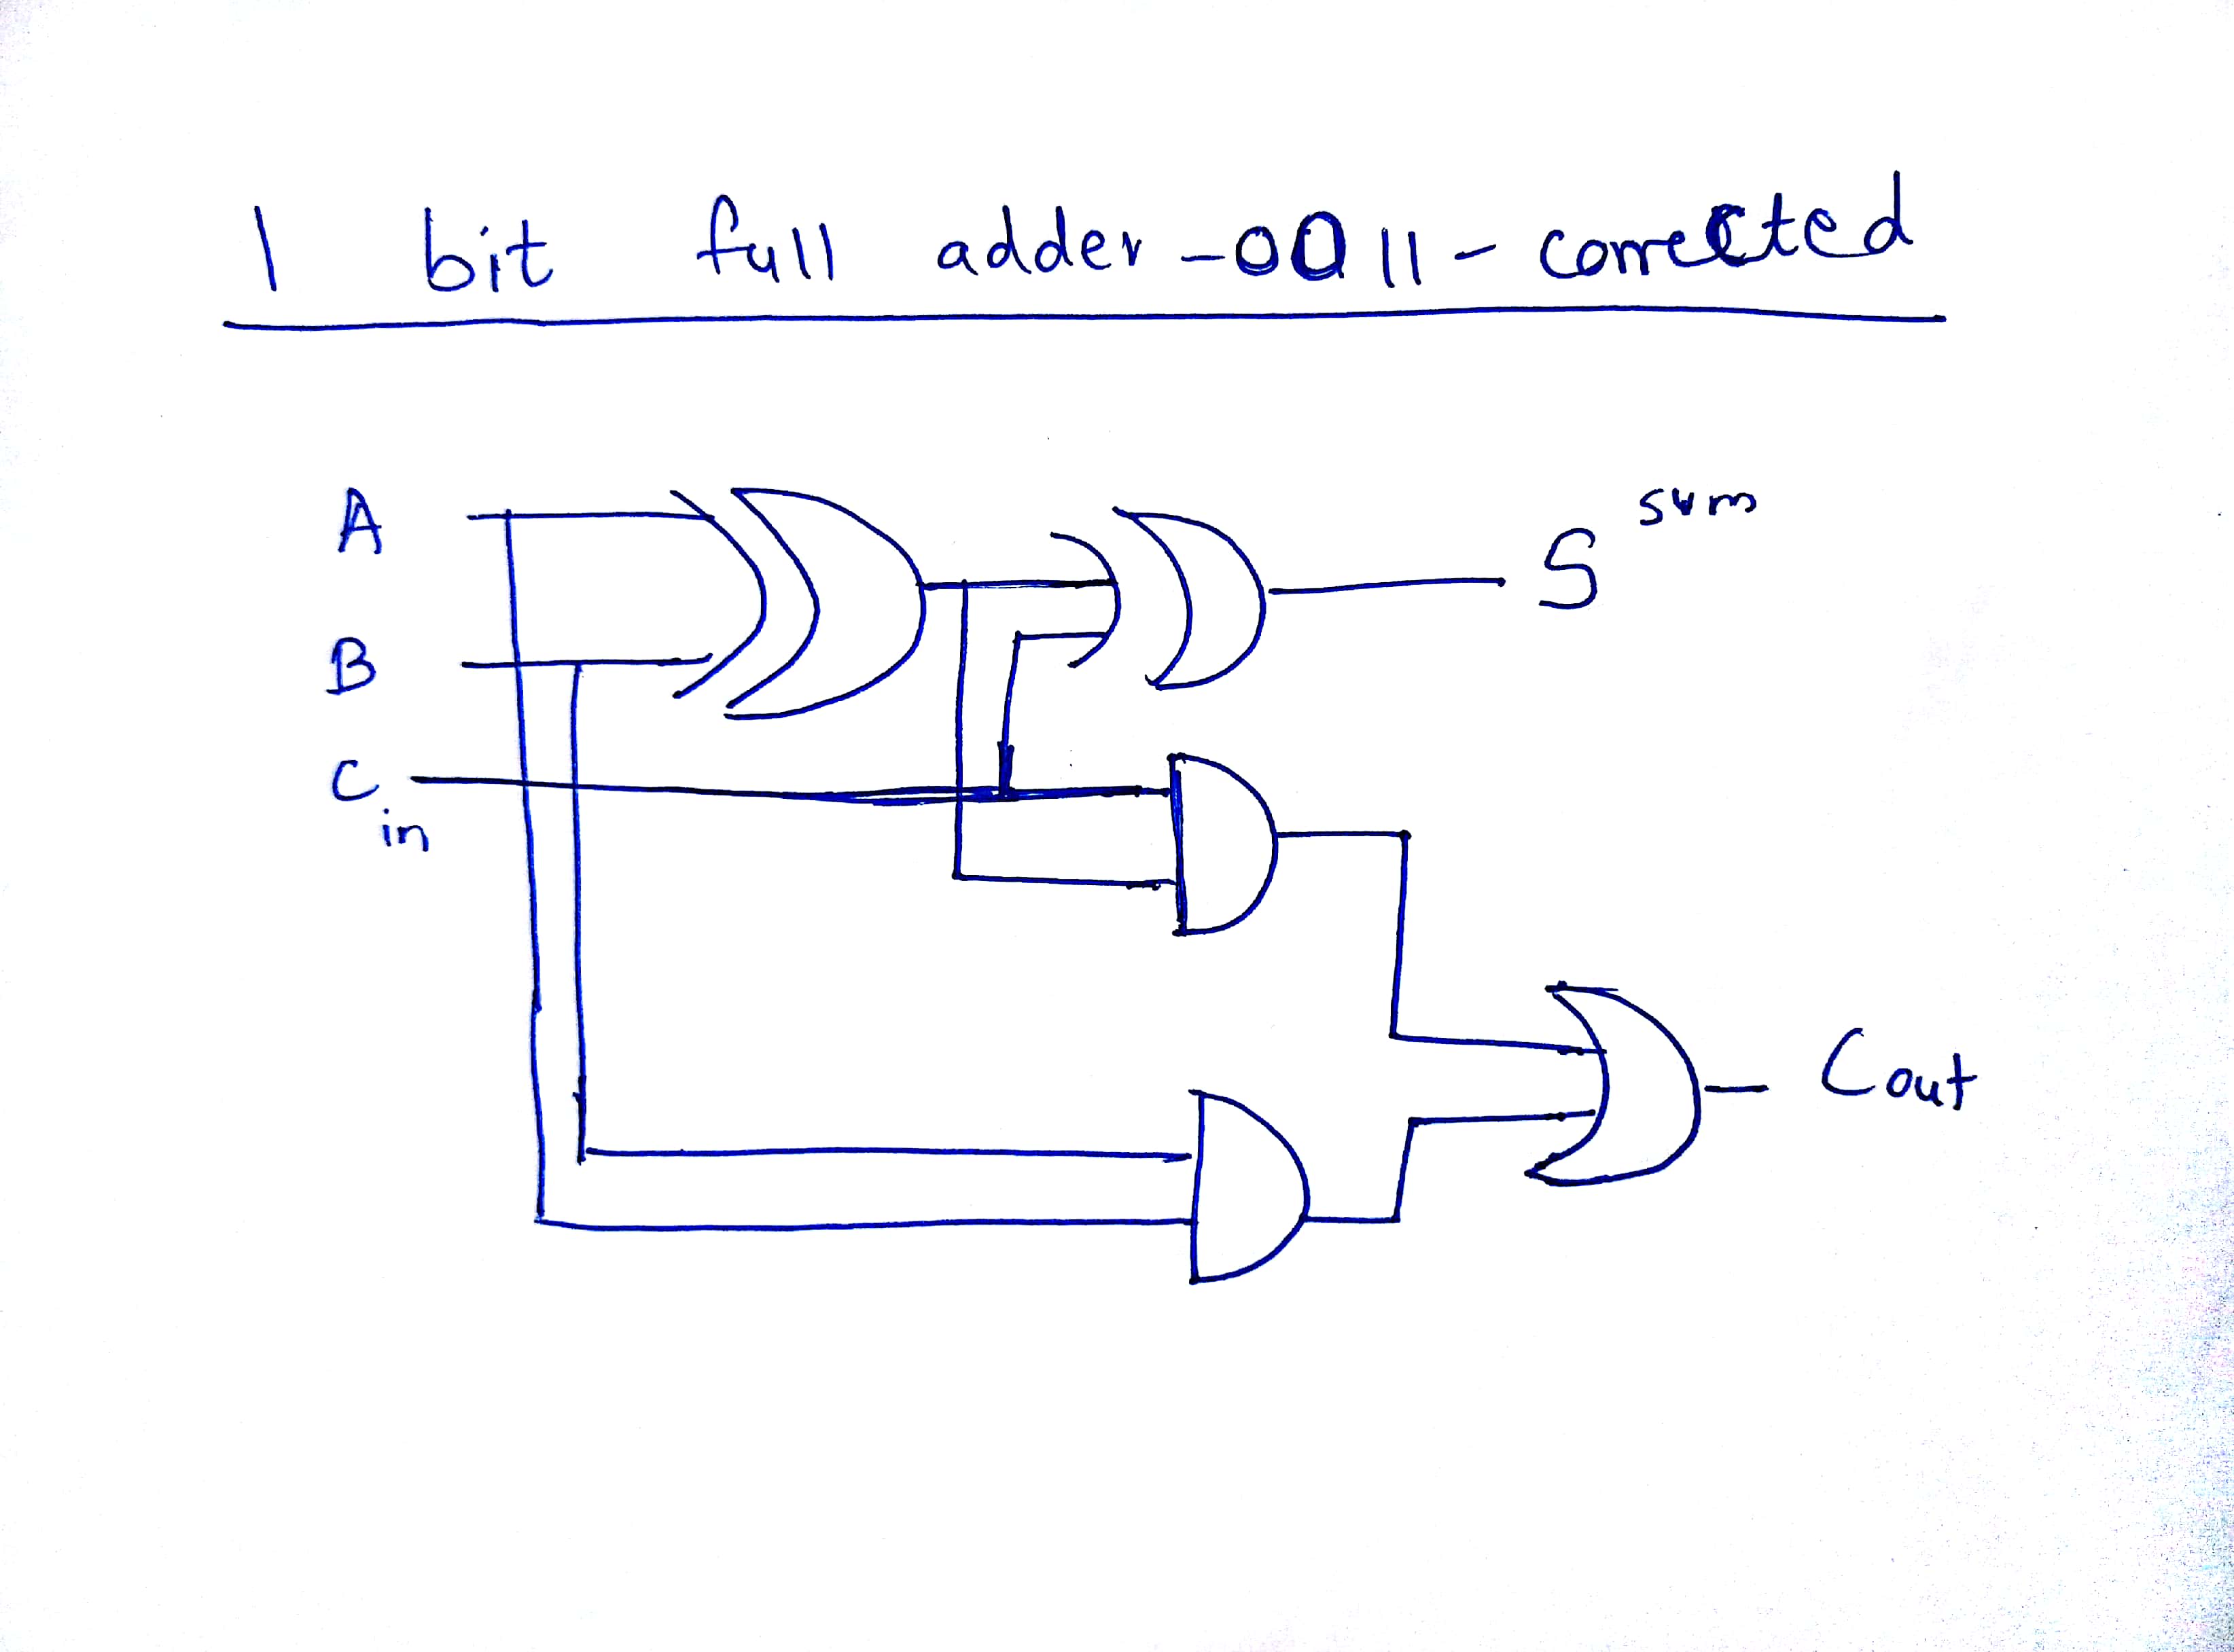 1 bit full adder - 0011 - corrected
A
B
C in
S sum
Cout